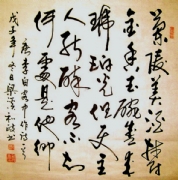 蘭陵美酒鬱
金香玉碗盛來
琥珀光但使主
人能醉客不知
何處是他鄉
唐李白客中作詩
戊子年冬日